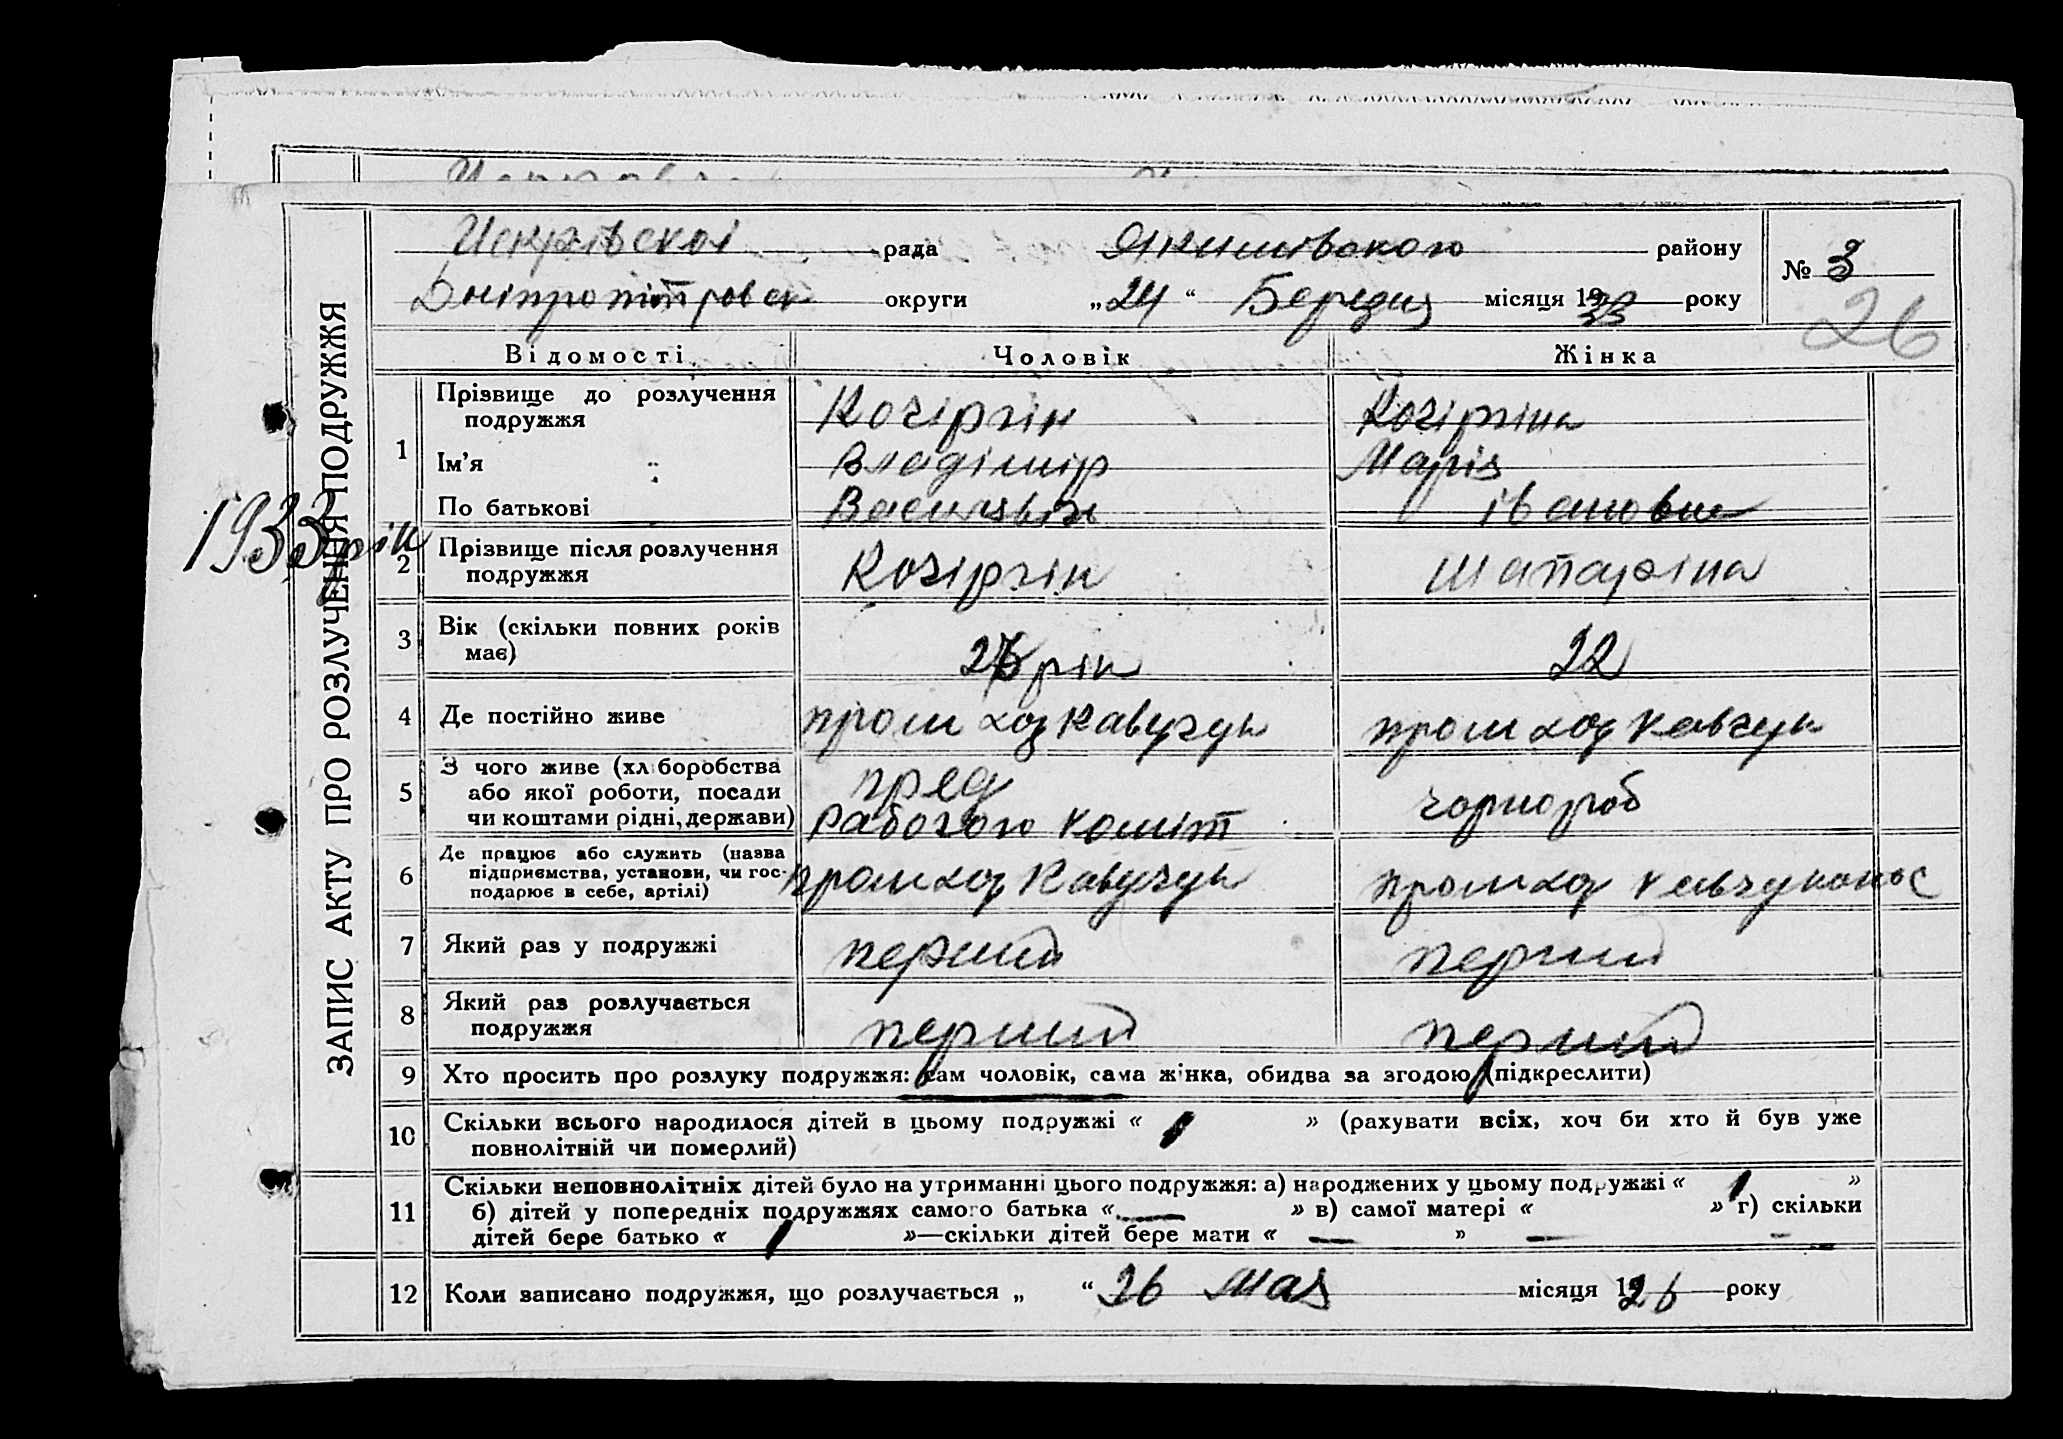 рада Якимівського району
№ 3
Дніпропітровск округи „24“ Березня місяця 1933 року
26
Відомості Чоловік Жінка
ЗАПИС АКТУ ПРО РОЗЛУЧЕННЯ ПОДРУЖЖЯ
1933 рік
1 Прізвище до розлучення Кочіргін Кочіргіна
подружжя
Ім'я „ Владімір Марія
По батькові Васильєвіч івановна
2 Прізвище після розлучення Кочіргін
подружжя
3 Вік (скільки повних років рік 22
має)
4 Де постійно живе пром хоз Кавучук пром хоз Кавчук
5 З чого живе (хліборобства пред
або якої роботи, посади чорнороб
чи коштами рідні, держави) Рабочого Коміт
6 Де працює або служить (назва
підприємства, установи, чи гос- промхоз Кавучук промхоз
подарює в себе, артілі)
7 Який раз у подружжі перший перший
8 Який раз розлучається перший перший
подружжя
9 Хто просить про розлуку подружжя: сам чоловік, сама жінка, обидва за згодою (підкреслити)
10 Скільки всього народилося дітей в цьому подружжі « 1 » (рахувати всіх, хоч би хто й був уже
повнолітній чи померлий)
11 Скільки неповнолітніх дітей було на утриманні цього подружжя: а) народжених у цьому подружжі « 1 »
б) дітей у попередніх подружжях самого батька « — » в) самої матері « » г) скільки
дітей бере батько « 1 »—скільки дітей бере мати « — » —
12 Коли записано подружжя, що розлучається „ “ 26 Мая місяця 1926 року